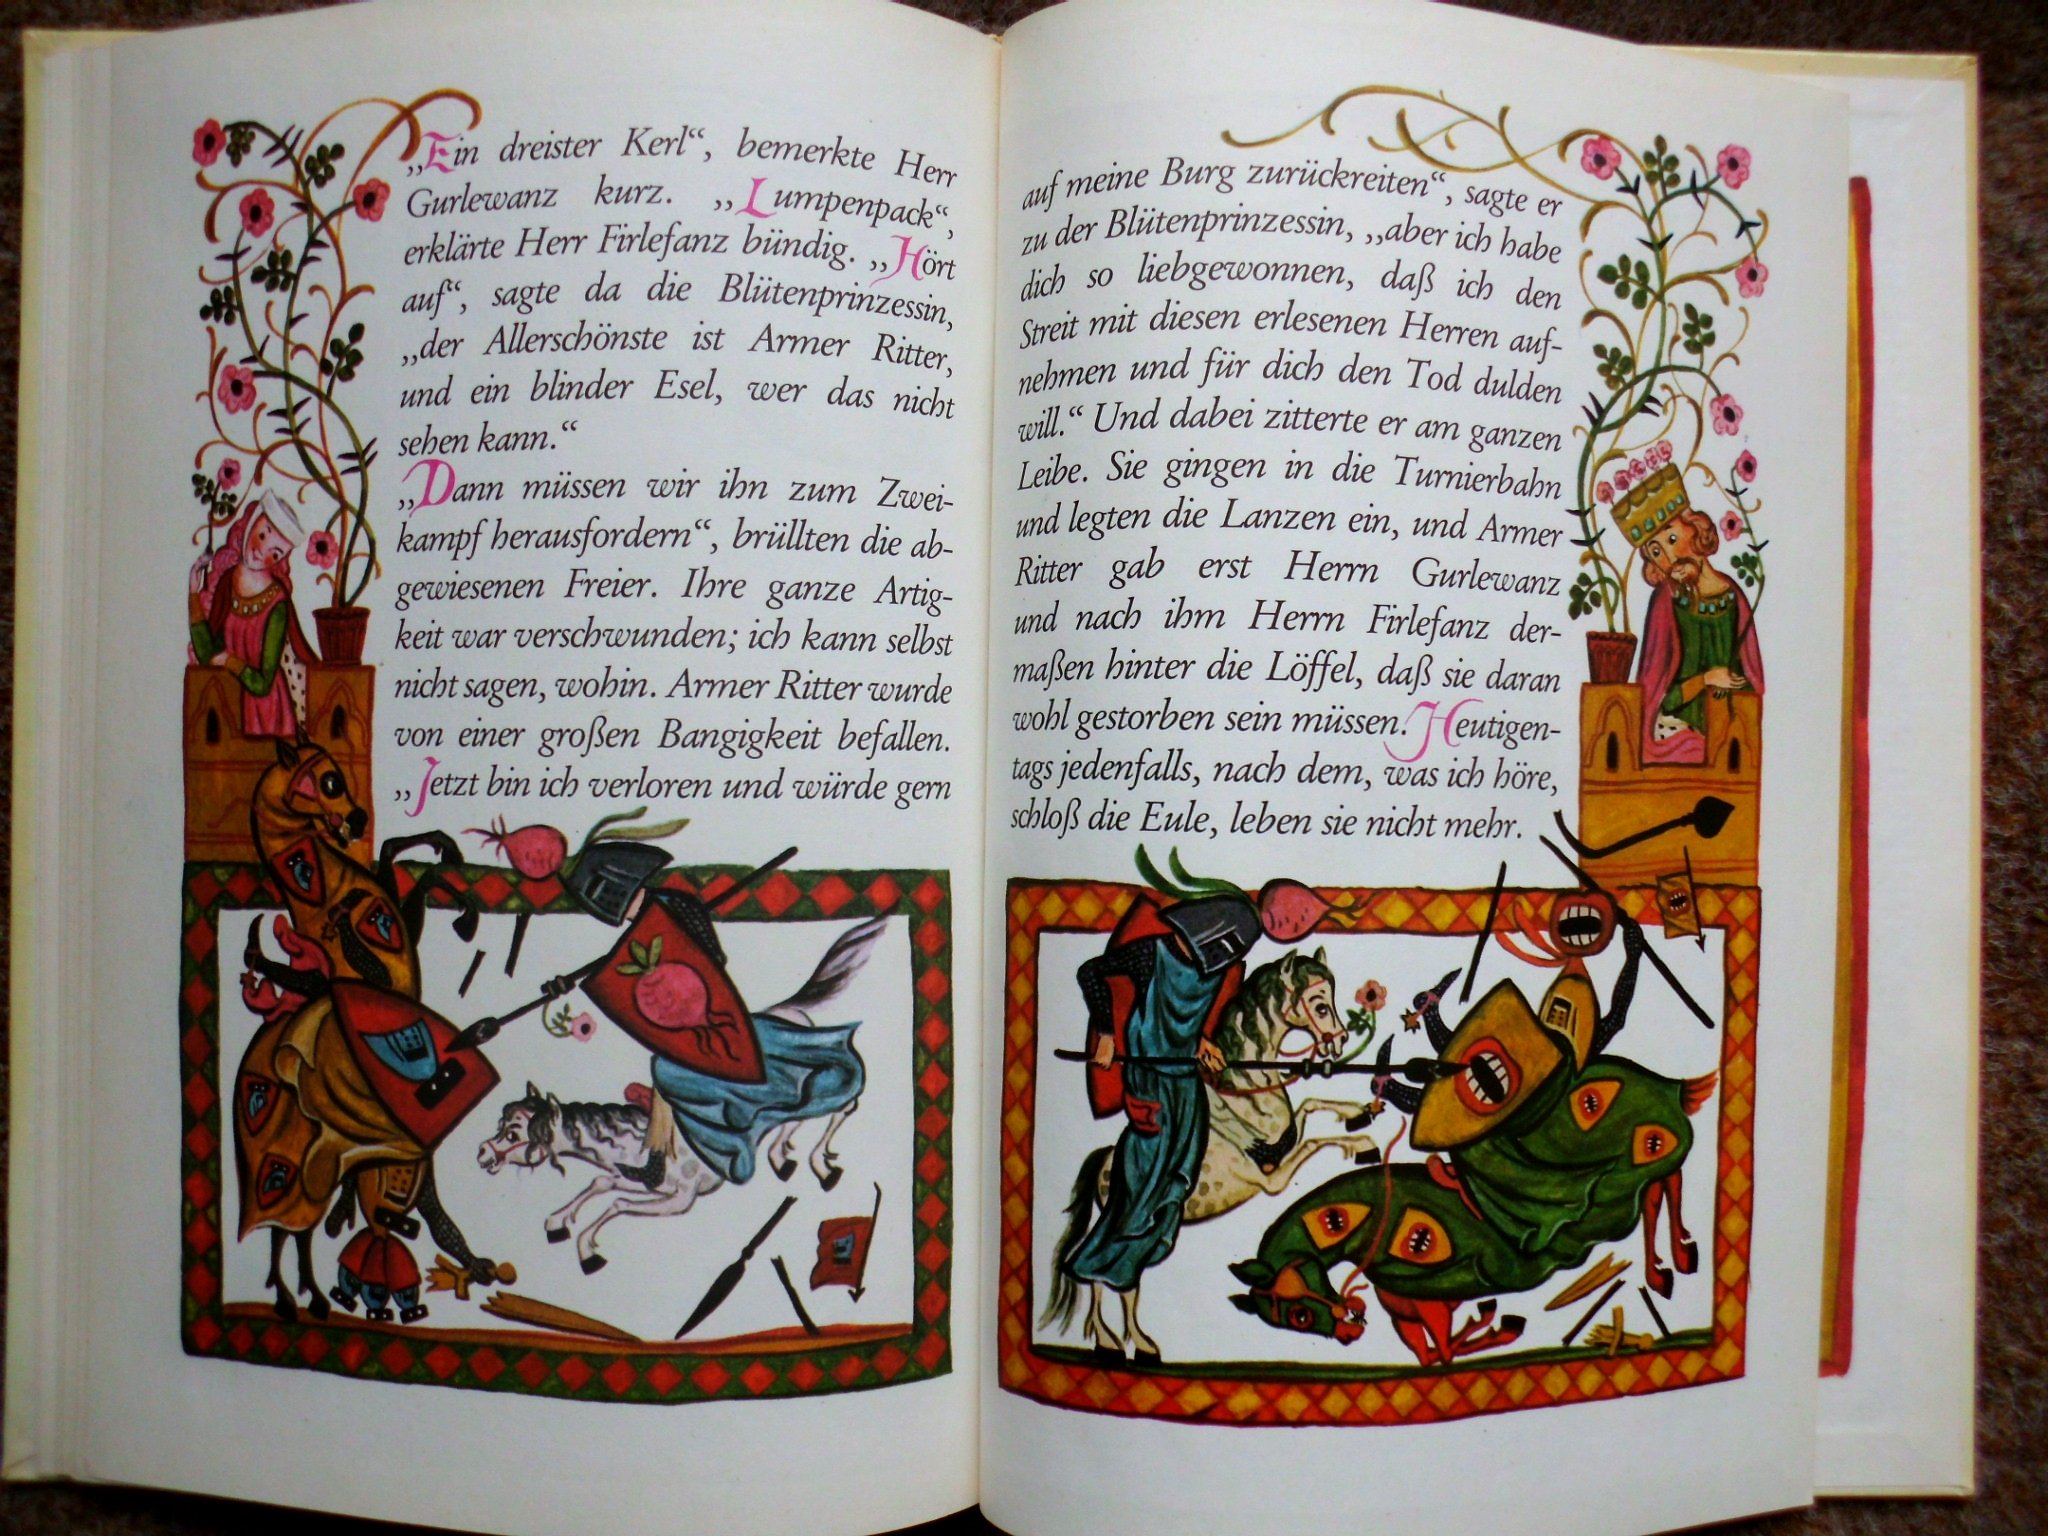 „Ein dreister Kerl“, bemerkte Herr
Gurlewanz kurz. „Lumpenpack“,
erklärte Herr Firlefanz bündig. „Hört
auf“, sagte da die Blütenprinzessin,
„der Allerschönste ist Armer Ritter,
und ein blinder Esel, wer das nicht
sehen kann.“
„Dann müssen wir ihn zum Zwei-
kampf herausfordern“, brüllten die ab-
gewiesenen Freier. Ihre ganze Artig-
keit war verschwunden; ich kann selbst
nicht sagen, wohin. Armer Ritter wurde
von einer großen Bangigkeit befallen.
„Jetzt bin ich verloren und würde gern
auf meine Burg zurückreiten“, sagte er
zu der Blütenprinzessin, „aber ich habe
dich so liebgewonnen, daß ich den
Streit mit diesen erlesenen Herren auf-
nehmen und für dich den Tod dulden
will.“ Und dabei zitterte er am ganzen
Leibe. Sie gingen in die Turnierbahn
und legten die Lanzen ein, und Armer
Ritter gab erst Herrn Gurlewanz
und nach ihm Herrn Firlefanz der-
maßen hinter die Löffel, daß sie daran
wohl gestorben sein müssen. Heutigen-
tags jedenfalls, nach dem, was ich höre,
schloß die Eule, leben sie nicht mehr.